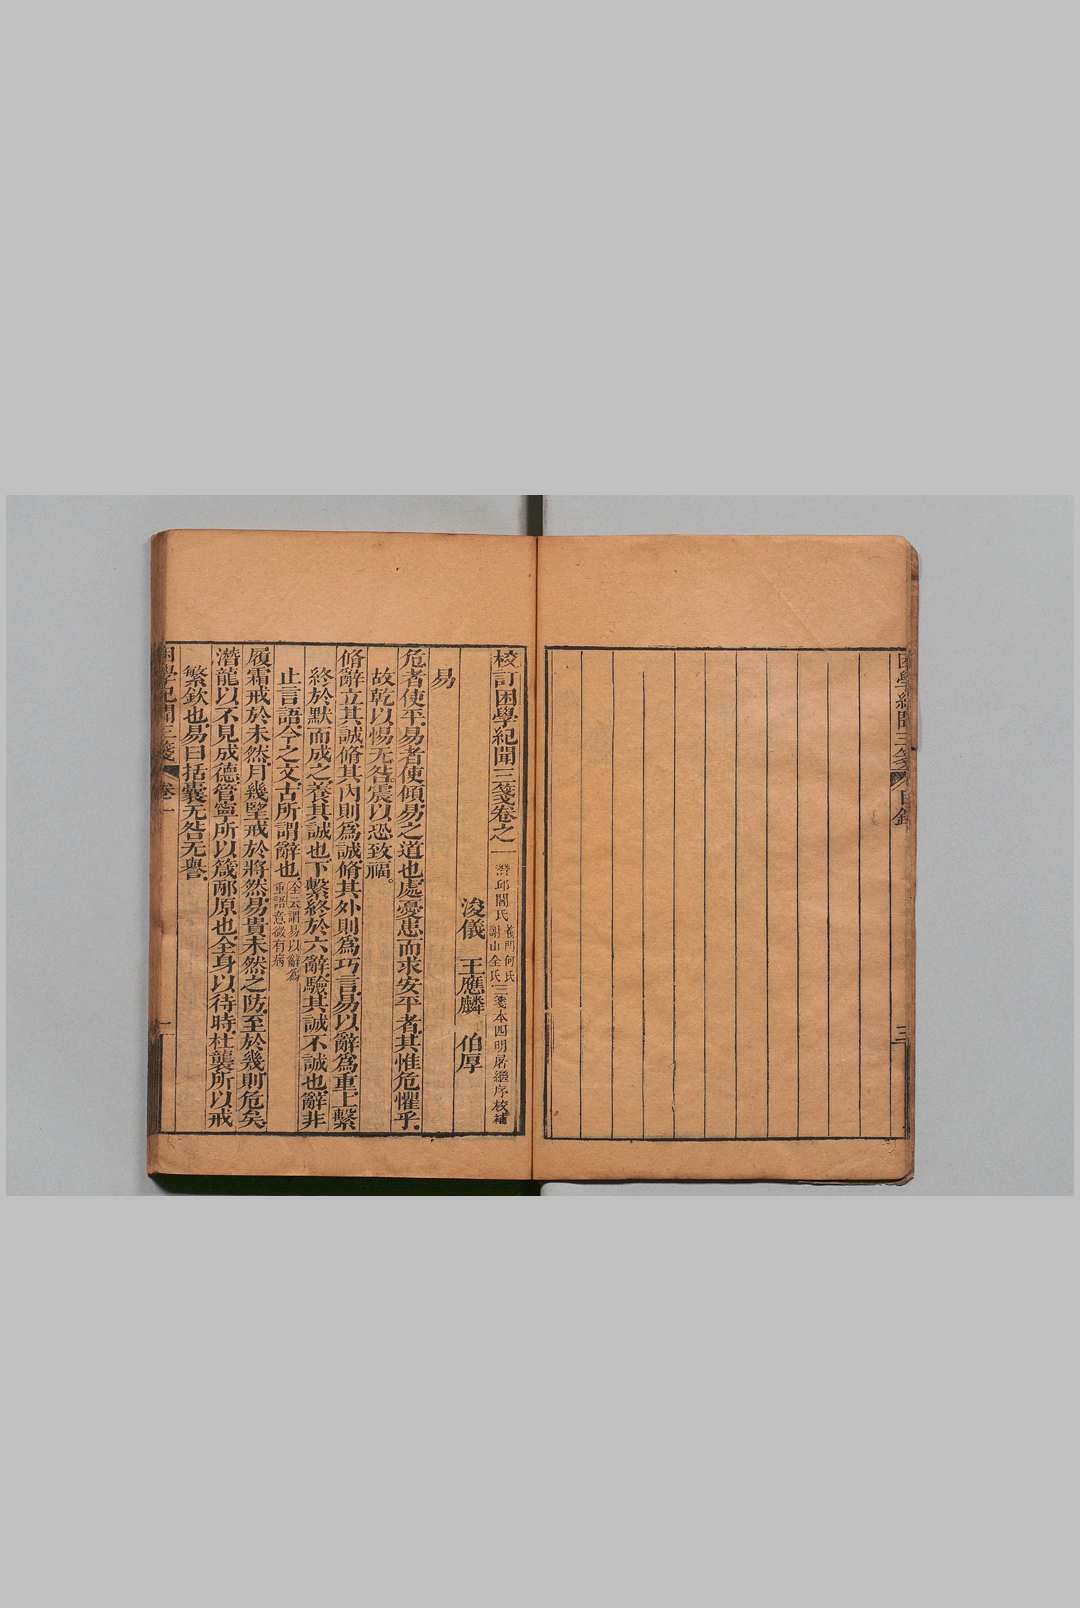 困學紀聞三箋 目錄 三
校訂困學紀聞三箋卷之一 潛邱閻氏 義門何氏 謝山全氏 三箋本四明屠繼序校補
浚儀 王應麟 伯厚
易
危者使平,易者使傾,易之道也,處憂患而求安平者,其惟危懼乎,
故乾以惕无咎,震以恐致福。
脩辭立其誠,脩其內則爲誠,脩其外則爲巧言,易以辭爲重,上繫
終於默而成之,養其誠也,下繫終於六辭,驗其誠不誠也,辭非
止言語,今之文,古所謂辭也, 全云謂易以辭爲
重語意微有病
履霜戒於未然,月幾望戒於將然,易貴未然之防,至於幾則危矣,
潛龍以不見成德,管寧所以箴邴原也,全身以待時,杜襲所以戒
繁欽也,易曰括囊无咎无譽,
困學紀聞三箋 卷一 一